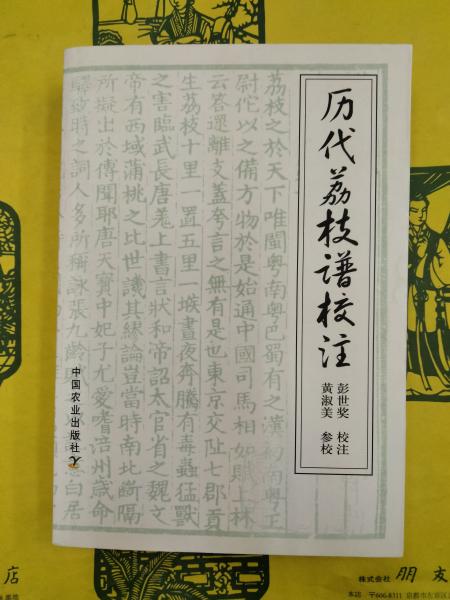 历代荔枝谱校注
彭世奖 校注
黄淑美 参校
荔枝之於天下唯閩粤南粤巴蜀有之漢初南粤王
尉佗以之備方物於是始通中國司馬相如賦上林
云荅遝離支蓋夸言之無有是也東京交阯七郡貢
生荔枝十里一置五里一堠晝夜奔騰有毒蟲猛獸
之害臨武長唐羌上書言狀和帝詔太官省之魏文
帝有西域蒲桃之比世譏其繆論豈當時南北斷隔
所擬出於傳聞耶唐天寶中妃子尤愛嗜涪州歲命
驛致時之詞人多所稱詠張九齡賦 白居
中国农业出版社
店
株式会社 朋友
本店 〒606-8311 京都市左京区